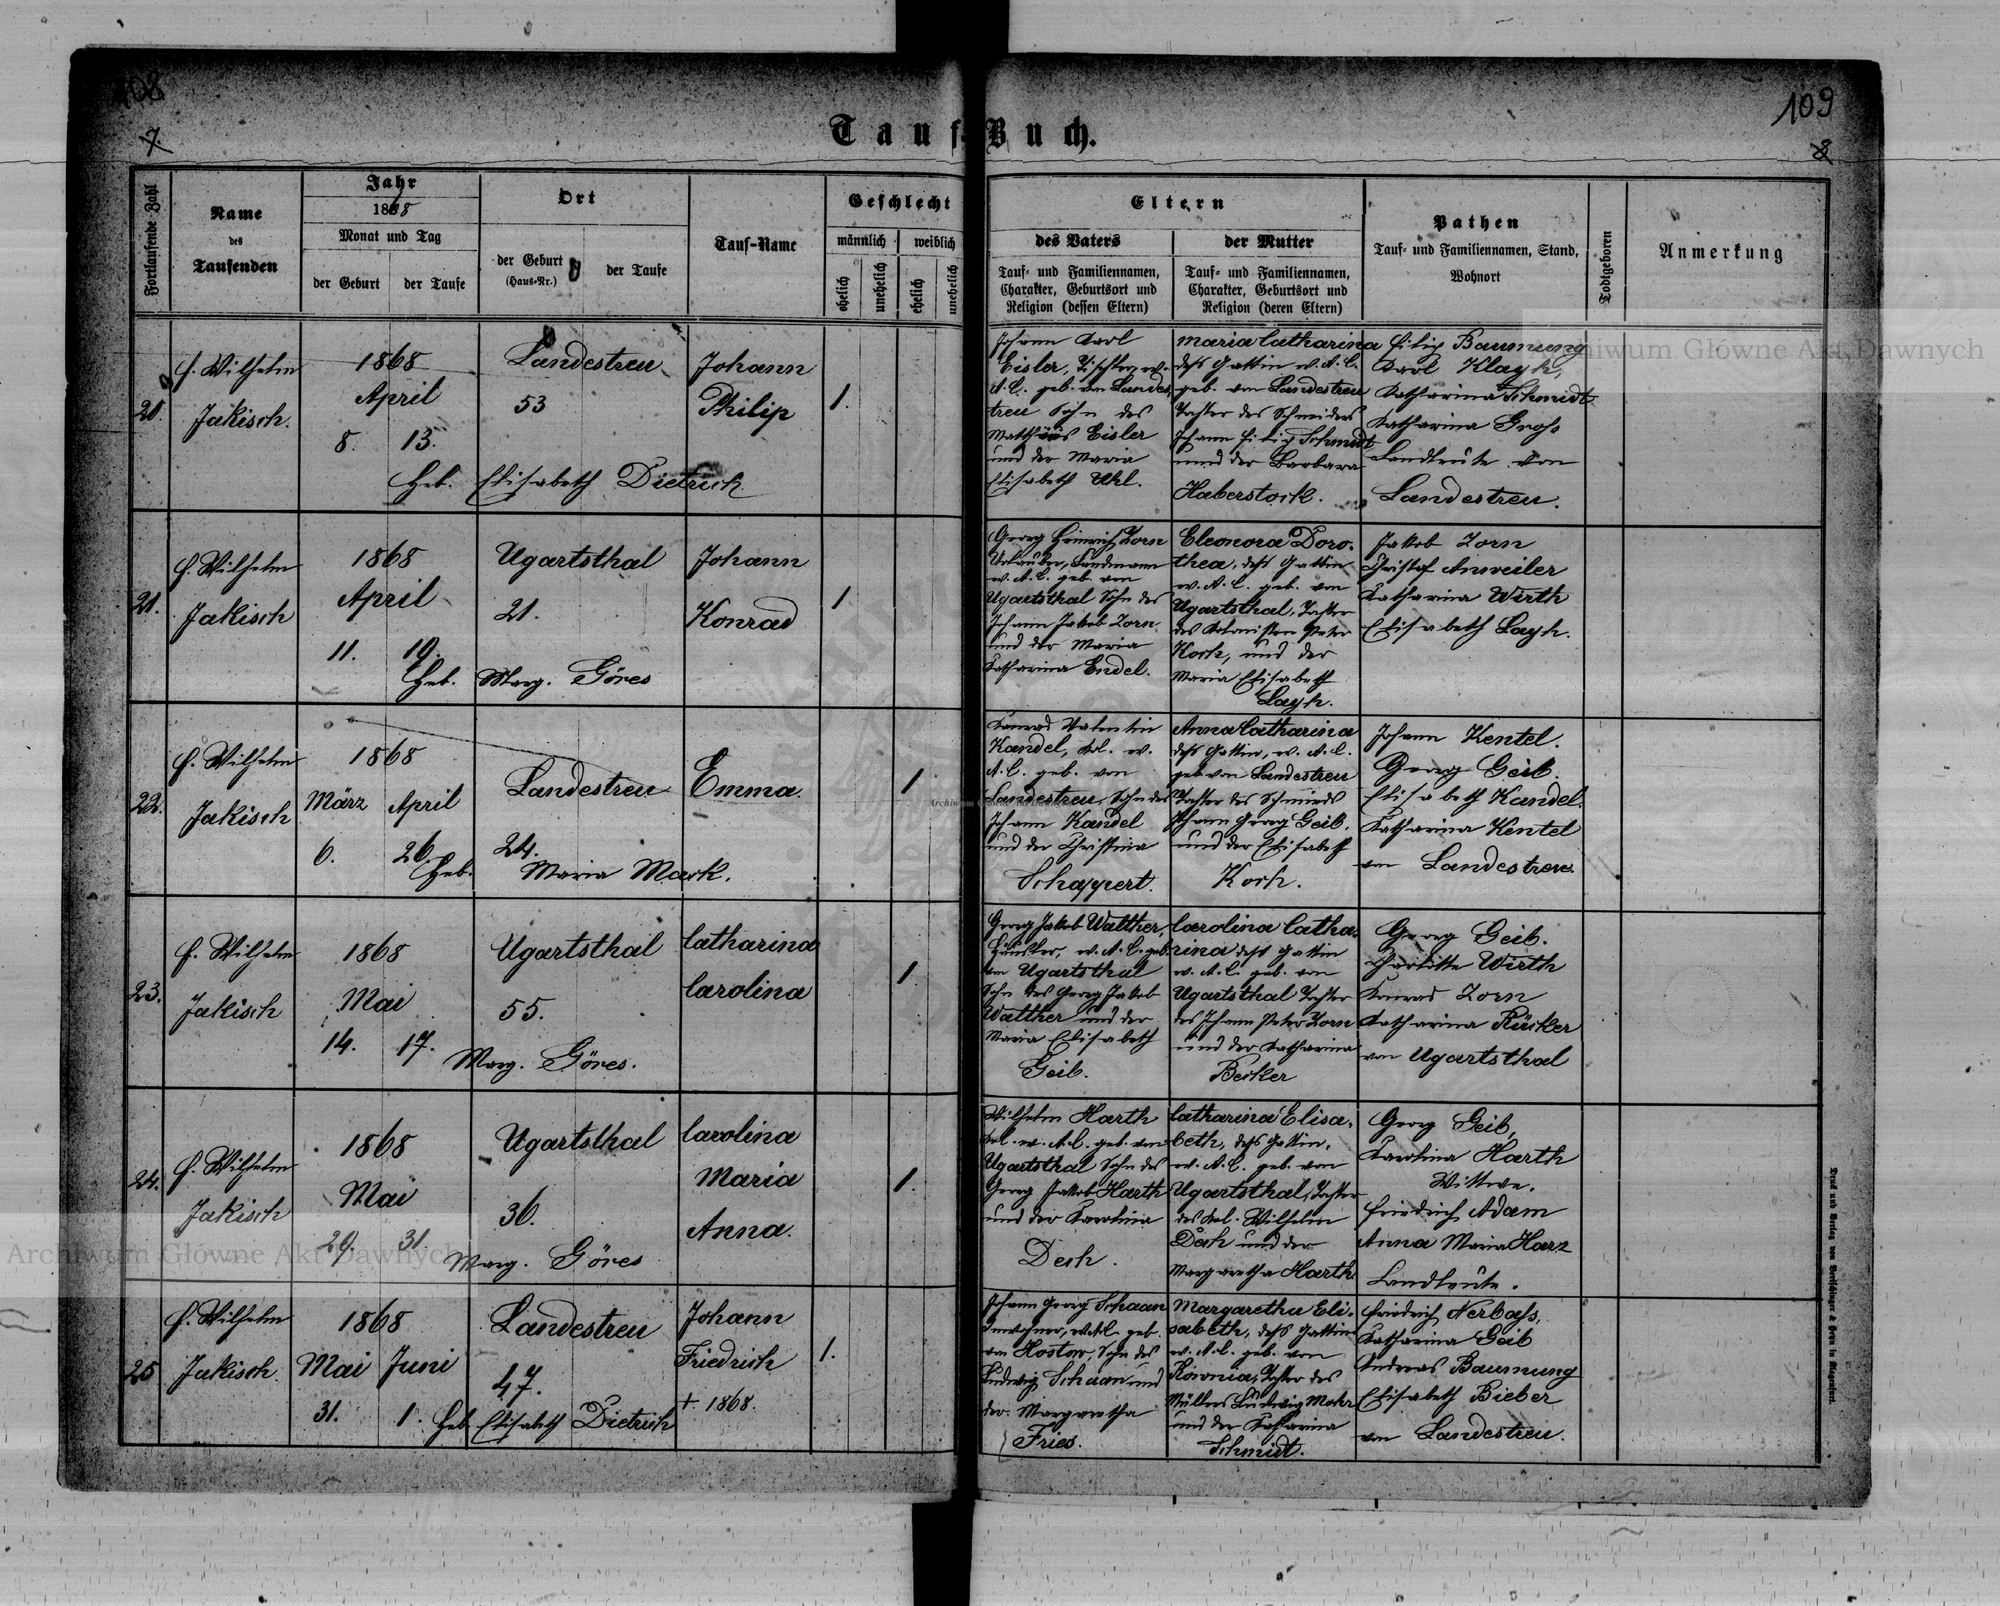 108
109
7.
8
Tauf-Buch.
Fortlaufende Zahl
Name
des
Taufenden
Jahr
1868
Monat und Tag
der Geburt
der Taufe
Ort
der Geburt
(Haus-Nr.)
der Taufe
Tauf-Name
Geschlecht
männlich
weiblich
ehelich
unehelich
ehelich
unehelich
Eltern
des Vaters
Tauf- und Familiennamen,
Charakter, Geburtsort und
Religion (dessen Eltern)
der Mutter
Tauf- und Familiennamen,
Charakter, Geburtsort und
Religion (deren Eltern)
Pathen
Tauf- und Familiennamen, Stand,
Wohnort
Todtgeboren
Anmerkung
20.
f. Wilhelm
Jakisch.
1868
April
8. 13.
Landestreu
53
Heb. Elisabeth Dietrich
Johann
Philip
1.
Johann Karl
Eisler, Tischler, ev.
A. C. geb. von Landes
treu Sohn des
Matthäus Eisler
und der Maria
Elisabeth Uhl.
Maria Catharina
dess Gattin ev. A. C.
geb. von Landestreu
Tochter des Schneiders
Johann Filip Schmidt
und der Barbara
Haberstock.
Filip Baumung
Karl Klayh,
Katharina Schmidt
Katharina Gross
Landleute von
Landestreu.
21.
f. Wilhelm
Jakisch
1868
April
11. 19.
Ugartsthal
21.
Heb. Marg. Göres
Johann
Konrad
1
Georg Heinrich Zorn
Urlauber, Landmann
ev. A. C. geb. von
Ugartsthal Sohn des
Johann Jakob Zorn
und der Maria
Katharina Endel.
Eleonora Doro-
thea, dess Gattin
ev. A. C. geb. von
Ugartsthal, Tochter
des Kolonisten Peter
Koch, und der
Maria Elisabeth
Layh.
Jakob Zorn
Christof Anweiler
Katharina Wirth
Elisabeth Layh.
22.
f. Wilhelm
Jakisch
1868
März April
6. 26.
Landestreu
24.
Heb. Maria Mark.
Emma.
1.
Konrad Valentin
Kandel, Kol. ev.
A. C. geb. von
Landestreu, Sohn des
Johann Kandel
und der Christina
Schappert.
Anna Catharina
dess Gattin, ev. A. C.
geb von Landestreu
Tochter des Schmieds
Johann Georg Geib,
und der Elisabeth
Koch.
Johann Kentel.
Georg Geib.
Elisabeth Kandel.
Katharina Kentel
von Landestreu.
23.
f. Wilhelm
Jakisch
1868
Mai
14. 17.
Ugartsthal
55.
Marg. Göres.
Catharina
Carolina
1.
Georg Jakob Walther,
Häusler, ev. A. C. geb.
von Ugartsthal
Sohn des Georg Jakob
Walther und der
Maria Elisabeth
Geib.
Carolina Catha-
rina dess Gattin
ev. A. C. geb. von
Ugartsthal Tochter
des Johann Peter Zorn
und der Katharina
Becker
Georg Geib.
Charlotte Wirth
Konrad Zorn
Katharina Rücker
von Ugartsthal
24.
f. Wilhelm
Jakisch
1868
Mai
29. 31.
Ugartsthal
36.
Marg. Göres
Carolina
Maria
Anna.
1.
Wilhelm Harth
Kol. ev. A. C. geb. von
Ugartsthal Sohn des
Georg Jakob Harth
und der Karolina
Desh.
Catharina Elisa-
beth, dess Gattin,
ev. A. C. geb. von
Ugartsthal, Tochter
des Kol. Wilhelm
Desh und der
Margaretha Harth.
Georg Geib,
Karolina Harth
Wittwe.
Friedrich Adam
Anna Maria Harz
Landleute.
25
f. Wilhelm
Jakisch.
1868
Mai Juni
31. 1.
Landestreu
47.
Heb. Elisabeth Dietrich
Johann
Friedrich
+ 1868.
1.
Johann Georg Schaan
Inwohner, geb.
von Sohn des
Ludwig Schaan und
der Margaretha
Fries.
Margaretha Eli-
sabeth, dess Gattin
ev. A. C. geb. von
Tochter des
Müllers Ludwig Mohr
und der Katharina
Schmidt.
Friedrich Nerbass,
Katharina Geib
Andreas Baumung
Elisabeth Bieber
von Landestreu.
Archiwum Główne Akt Dawnych
Archiwum Główne Akt Dawnych